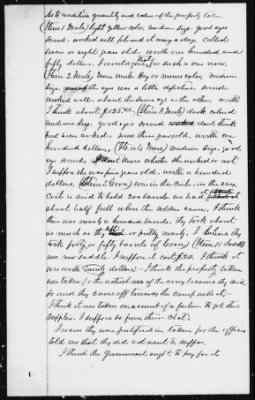 As to condition quantity and value of the property &c.
(Item 1 Mule) light yellow color, medium size, good eyes
sound, worked well, fill out at many a day. Called
seven or eight years old, worth one hundred and
fifty dollars. I would give that for such a one now.
(Item 2 Mule) mouse color, medium
size, the eye was a little defective. sound
worked well. about the same age as the other, worth
I think about $125.00. (Item 3 Mule) dark colored
medium size, good eyes sound don't think
had been worked. some three years old, worth one
hundred dollars. (Mare) medium size, good
eyes sound. I don't know whether she worked or not
I suppose she was five years old. worth a hundred
dollars. (Item Corn) was in the Crib. in the ear.
Crib is said to hold 200 barrels. we had
about half full when the soldiers came. I think
there was nearly a hundred barrels. they took about
as much as they or pretty nearly. I believe they
took forty or fifty barrels of corn. (Item 11 Saddle)
was new saddle. I suppose it cost $20. I think it
was worth Twenty dollars. I think the property taken
was taken for the actual use of the army because they said
so and they came off towards the camp with it.
I think it was taken on account of a failure to get their
supplies. I suppose so from their chat.
I swear they was justified in taken for the officers
told me that they did not want to suffer.
I think the Government ought to pay for it